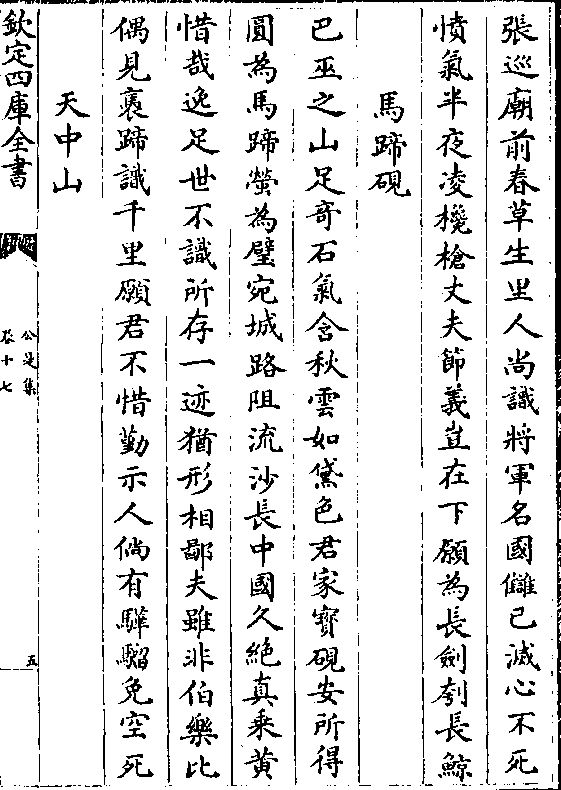 張巡廟前春草生里人尚識將軍名國讎已滅心不死
憤氣半夜凌欃槍丈夫節義豈在下願為長劍刳長鯨
馬蹄硯
巴巫之山足竒石氣含秋雲如黛色君家寳硯安所得
圓為馬蹄瑩為璧宛城路阻流沙長中國久絶真乗黄
惜哉逸足世不識所存一迹猶形相鄙夫雖非伯樂比
偶見褭蹄識千里願君不惜勤示人倘有驊騮免空死
天中山
欽定四庫全書
公是集
卷十七
五